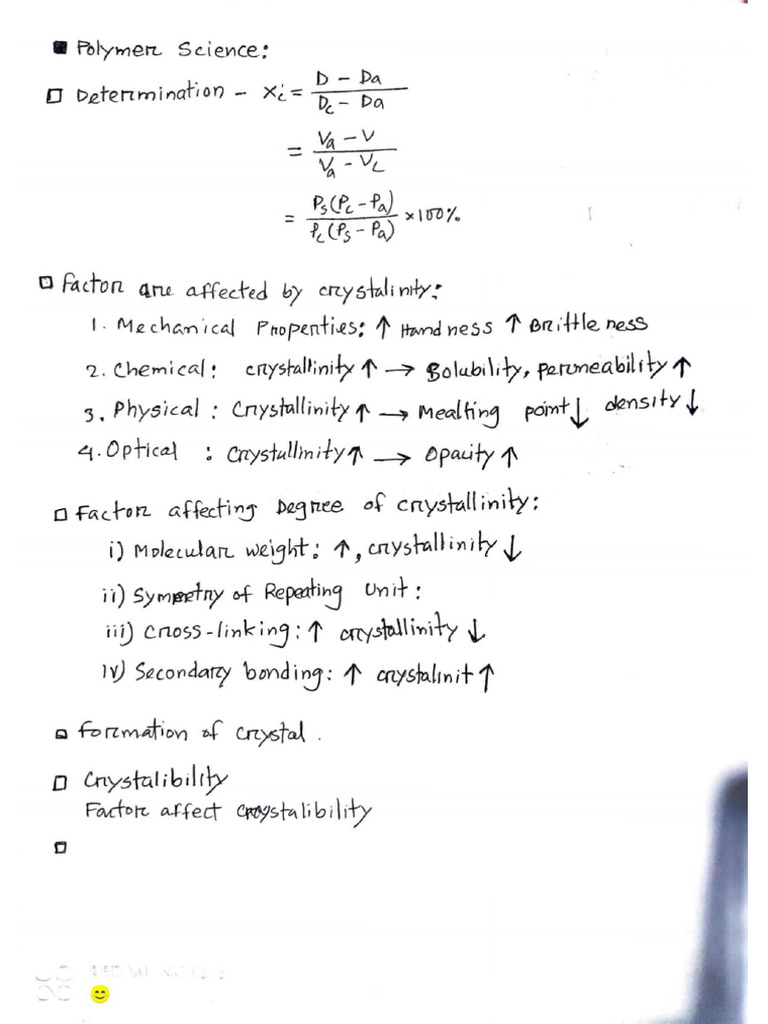 Polymer Science:
□ Determination - Xi = (D - Da) / (Dc - Da)
= (Va - V) / (Va - Vc)
= Ps(Pc - Pa) / Pc(Ps - Pa) ×100%
□ Factor are affected by crystalinity:
1. Mechanical Properties: ↑ Hardness ↑ Brittleness
2. Chemical: crystallinity ↑ → Solubility, permeability ↑
3. Physical: Crystallinity ↑ → Mealting point ↓ density ↓
4. Optical : Crystallinity ↑ → Opacity ↑
□ Factor affecting Degree of crystallinity:
i) Molecular weight: ↑, crystallinity ↓
ii) Symmetry of Repeating Unit:
iii) Cross-linking: ↑ crystallinity ↓
iv) Secondary bonding: ↑ crystalinit ↑
□ Formation of crystal.
□ Crystalibility
Factor affect crystalibility
□
REDMI NOTE 8